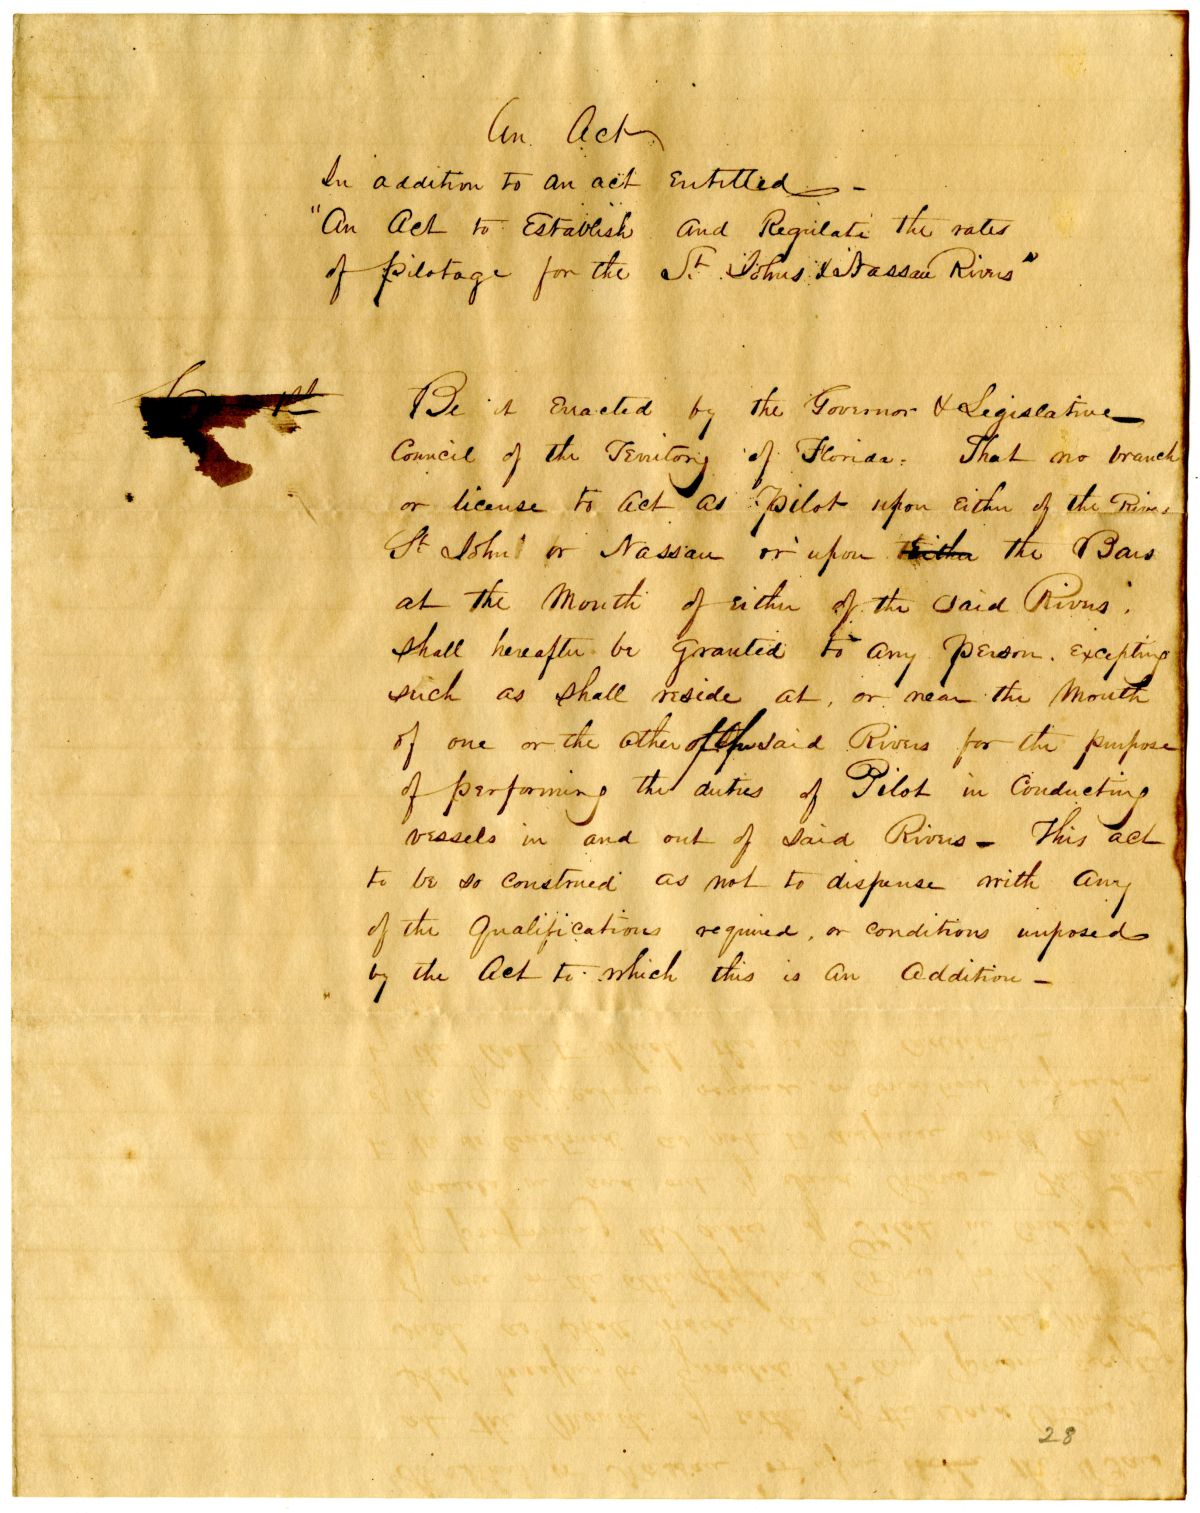 An Act
In addition to an act Entitled –
"An Act to Establish and Regulate the rates
of pilotage for the St. Johns & Nassau Rivers"
1st
Be it Enacted by the Governor & Legislative
Council of the Territory of Florida. That no branch
or license to act as Pilot upon either of the Rivers
St Johns or Nassau or upon either the Bars
at the Mouth of either of the said Rivers.
shall hereafter be Granted to any Person. excepting
such as shall reside at, or near the Mouth
of one or the other of the said Rivers for the purpose
of performing the duties of Pilot in Conducting
vessels in and out of said Rivers – This act
to be so construed as not to dispense with any
of the Qualifications required, or conditions imposed
by the Act to which this is an Addition –
28